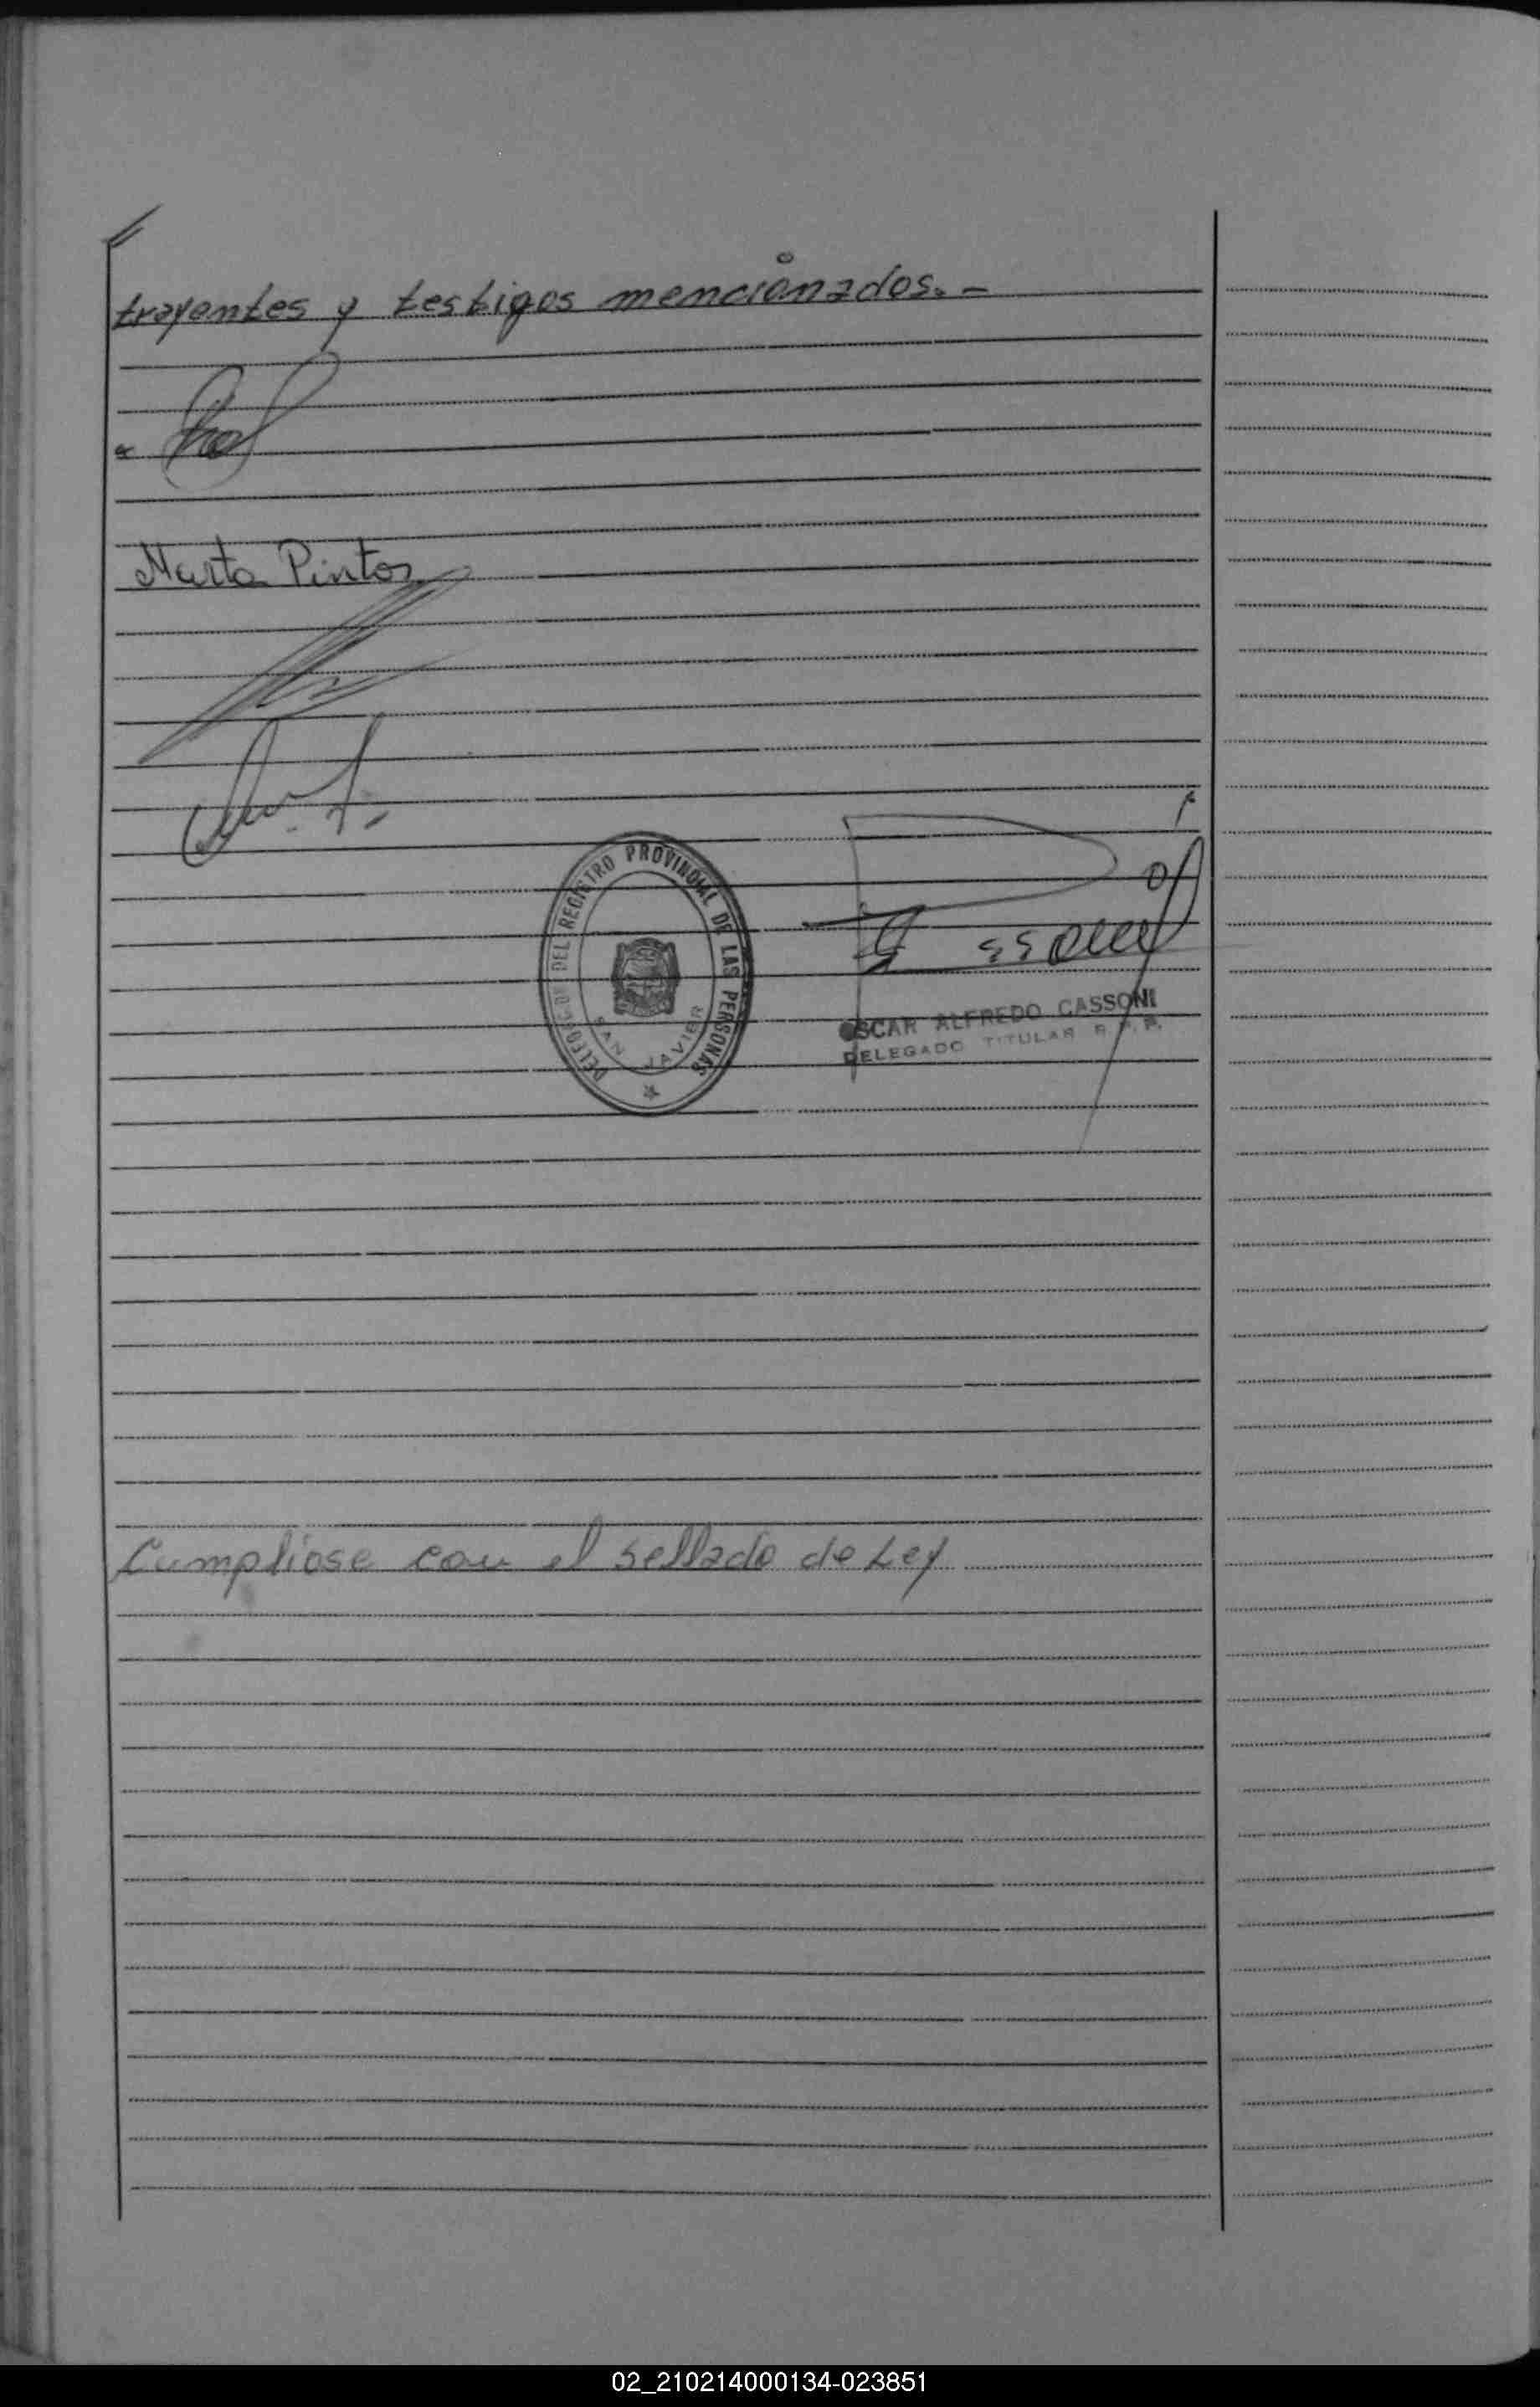 trayentes y testigos mencionados.-
Marta Pintos
DELEGACION DEL REGISTRO PROVINCIAL DE LAS PERSONAS
SAN JAVIER
OSCAR ALFREDO GASSONI
DELEGADO TITULAR R.P.P.
Cumpliose con el sellado de Ley
02_210214000134-023851